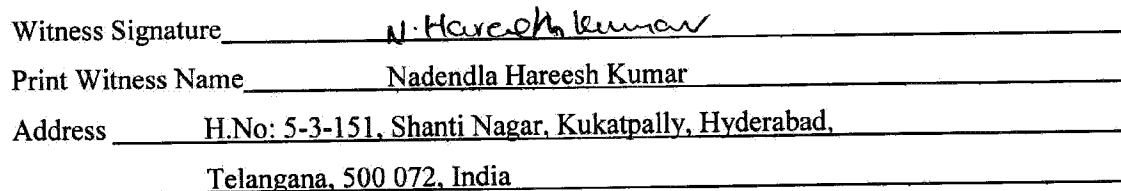 Witness Signature N. Hareesh Kumar
Print Witness Name Nadendla Hareesh Kumar
Address H.No: 5-3-151, Shanti Nagar, Kukatpally, Hyderabad,
Telangana, 500 072, India